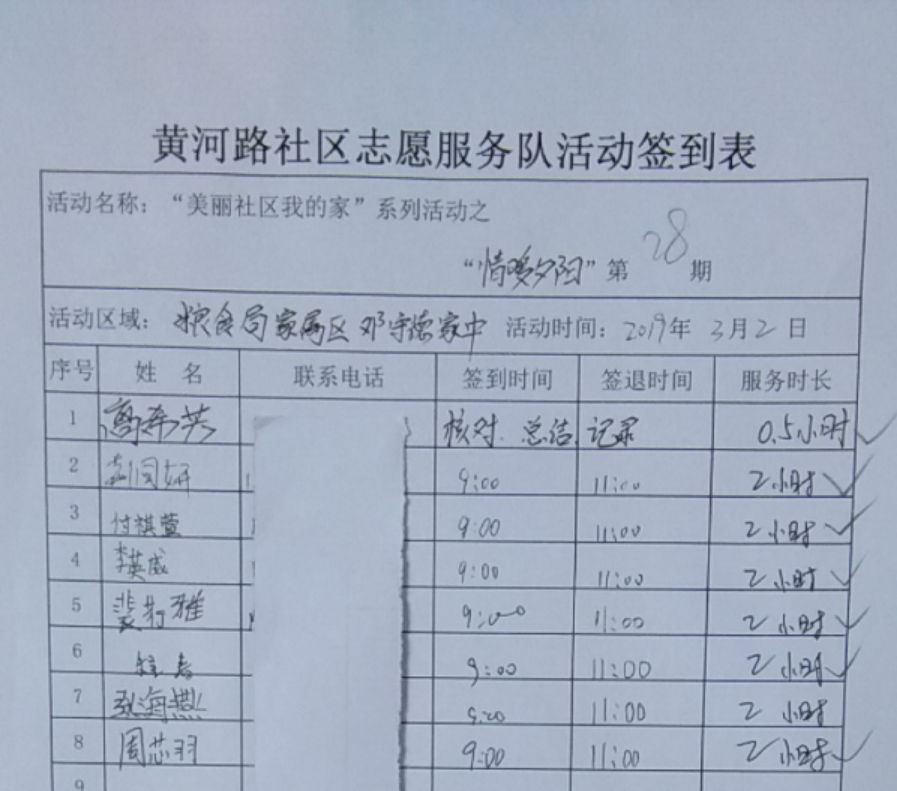 黄河路社区志愿服务队活动签到表
活动名称:“美丽社区我的家”系列活动之
“情暖夕阳”第28期
活动区域:粮食局家属区邓守德家中 活动时间:2019年3月2日
序号 姓名 联系电话 签到时间 签退时间 服务时长
1 高希英 核对 总结 记录 0.5小时
2 9:00 11:00 2小时
3 付祺萱 9:00 11:00 2小时
4 李英威 9:00 11:00 2小时
5 9:00 11:00 2小时
6 9:00 11:00 2小时
7 张海燕 9:00 11:00 2小时
8 周芯羽 9:00 11:00 2小时
9